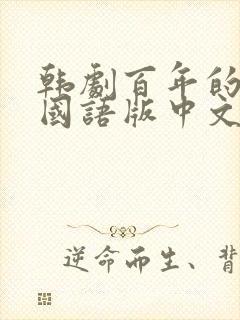 韩劇百年的
國語版中文
逆命而生、背